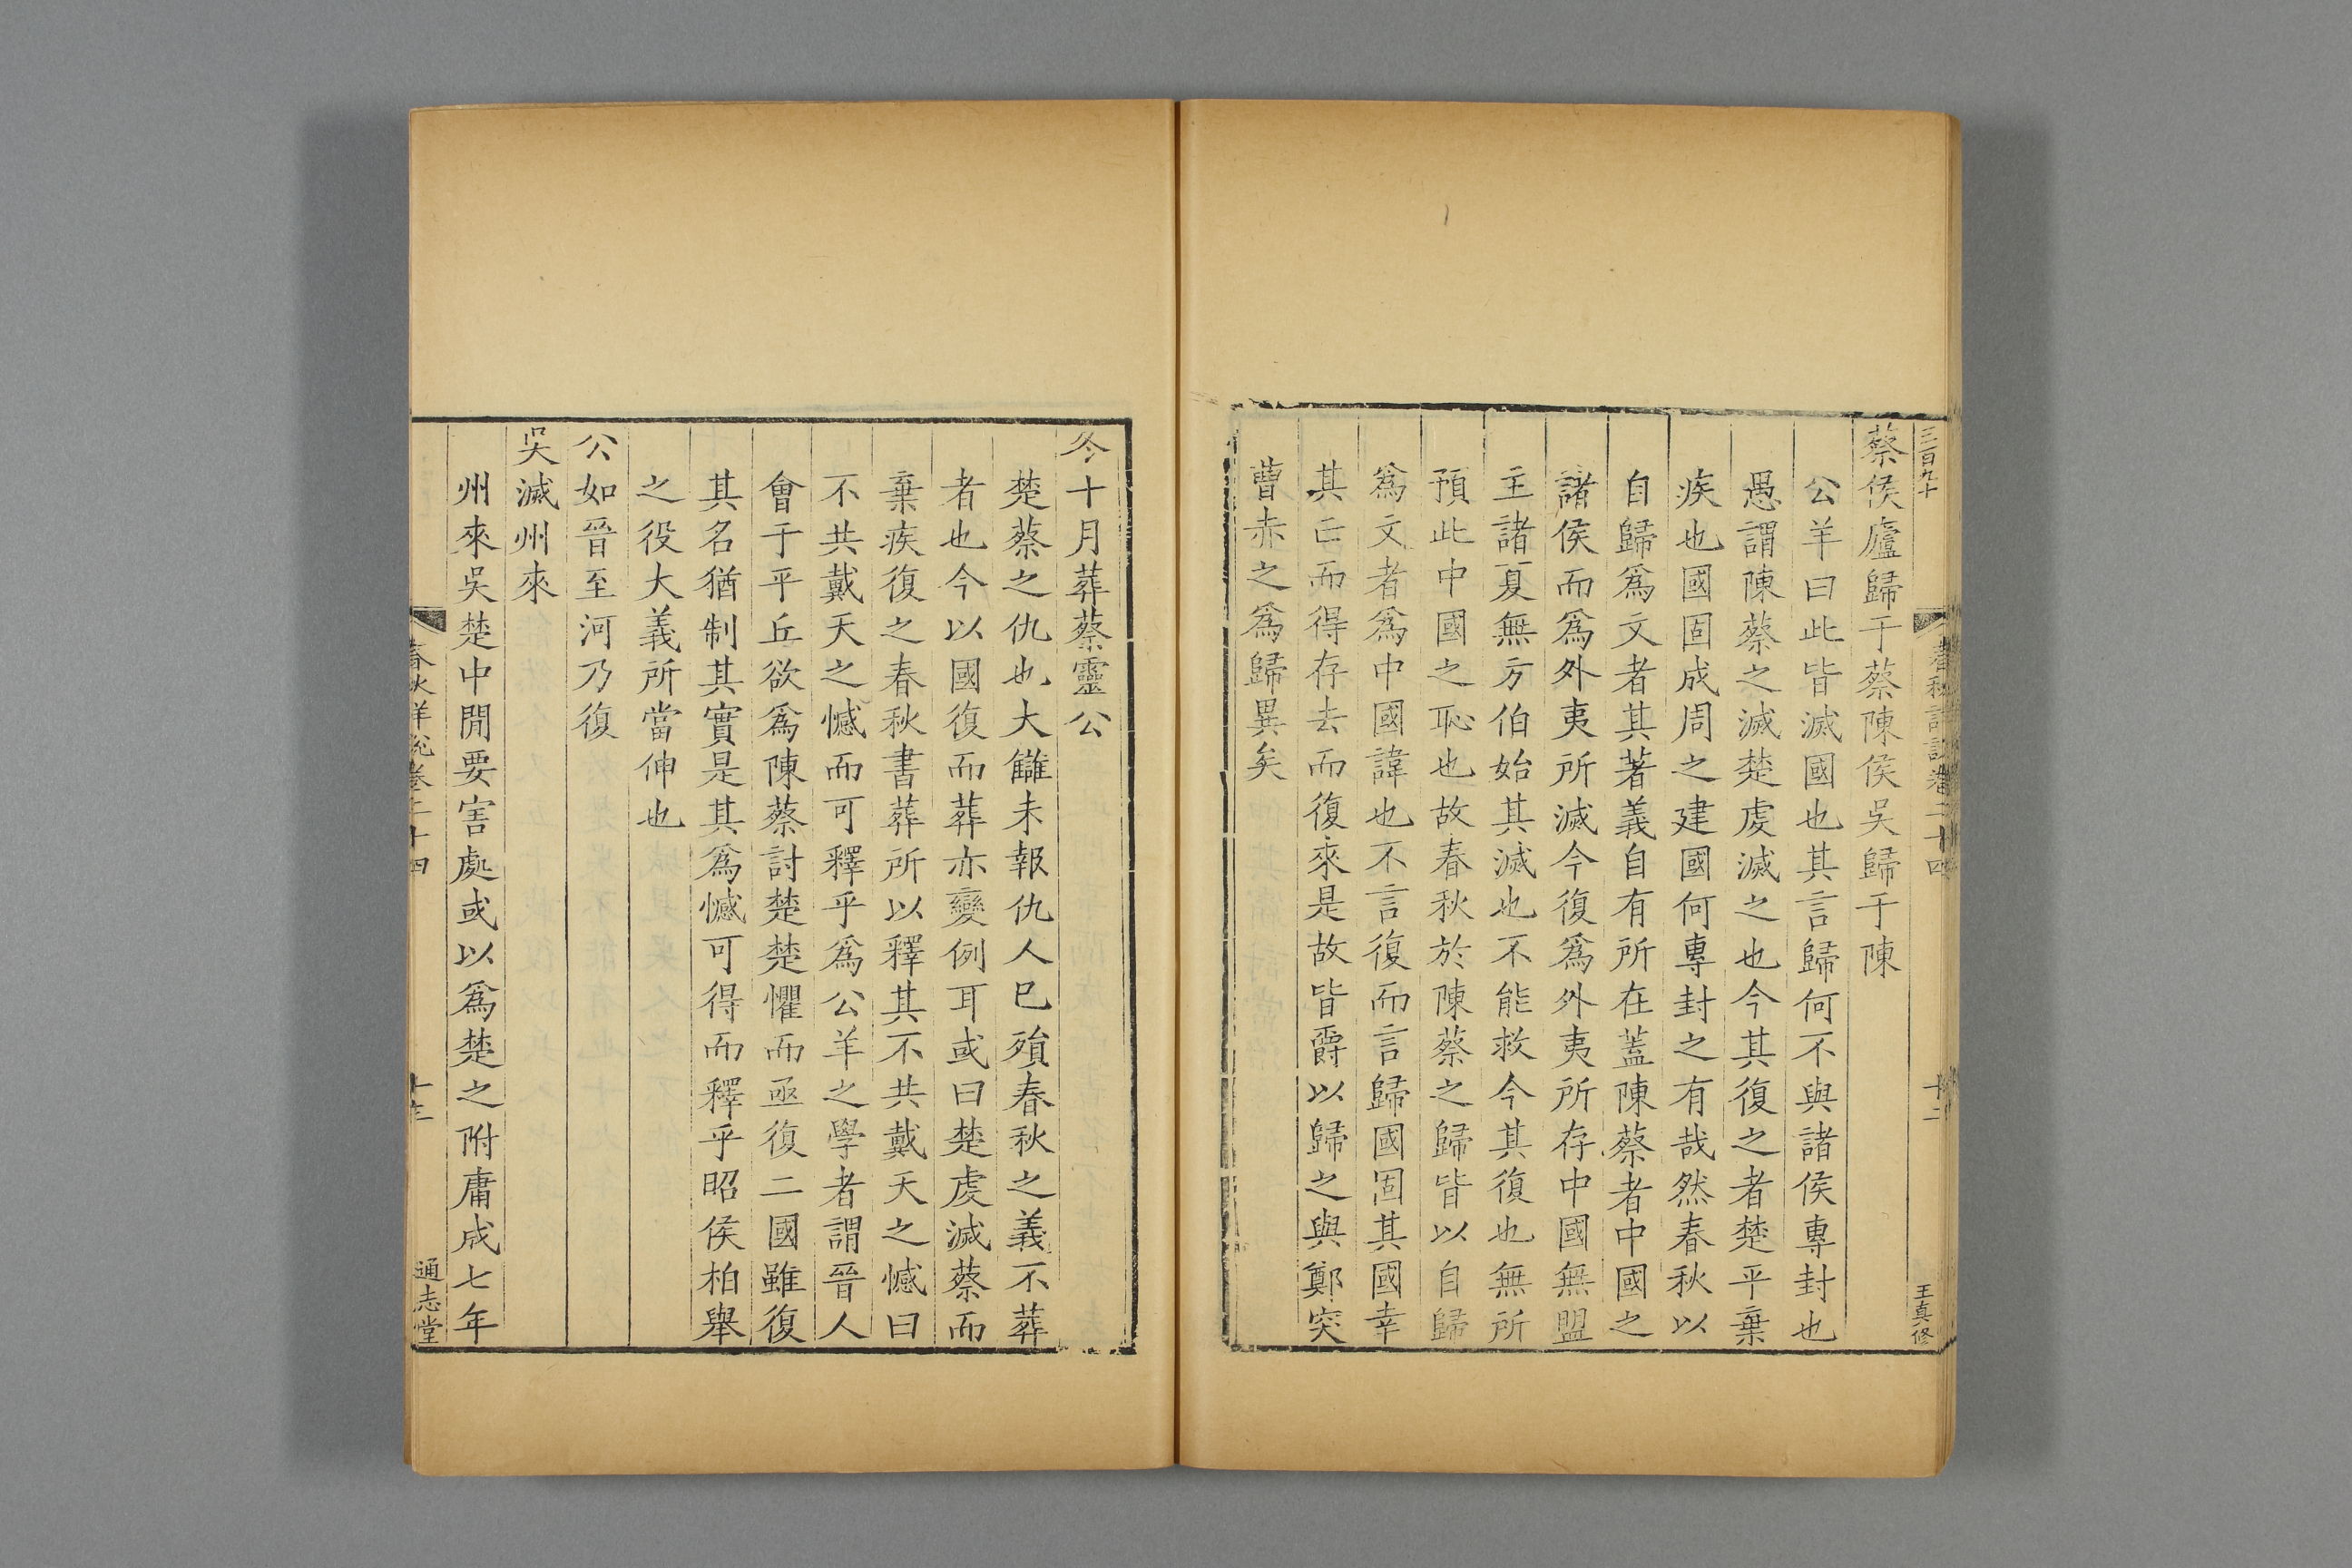 三百九十
春秋詳說卷二十四
十二
王真修
蔡侯廬歸于蔡陳侯吳歸于陳
公羊曰此皆滅國也其言歸何不與諸侯專封也
愚謂陳蔡之滅楚虔滅之也今其復之者楚平棄
疾也國固成周之建國何專封之有哉然春秋以
自歸爲文者其著義自有所在蓋陳蔡者中國之
諸侯而爲外夷所滅今復爲外夷所存中國無盟
主諸夏無方伯始其滅也不能救今其復也無所
預此中國之恥也故春秋於陳蔡之歸皆以自歸
爲文者爲中國諱也不言復而言歸國固其國幸
其亡而得存去而復來是故皆爵以歸之與鄭突
曹赤之爲歸異矣
冬十月葬蔡靈公
楚蔡之仇也大讎未報仇人已殞春秋之義不葬
者也今以國復而葬亦變例耳或曰楚虔滅蔡而
棄疾復之春秋書葬所以釋其不共戴天之憾曰
不共戴天之憾而可釋乎爲公羊之學者謂晉人
會于平丘欲爲陳蔡討楚楚懼而亟復二國雖復
其名猶制其實是其爲憾可得而釋乎昭侯柏舉
之役大義所當伸也
公如晉至河乃復
吳滅州來
州來吳楚中閒要害處或以爲楚之附庸成七年
春秋詳說卷二十四
十三
通志堂